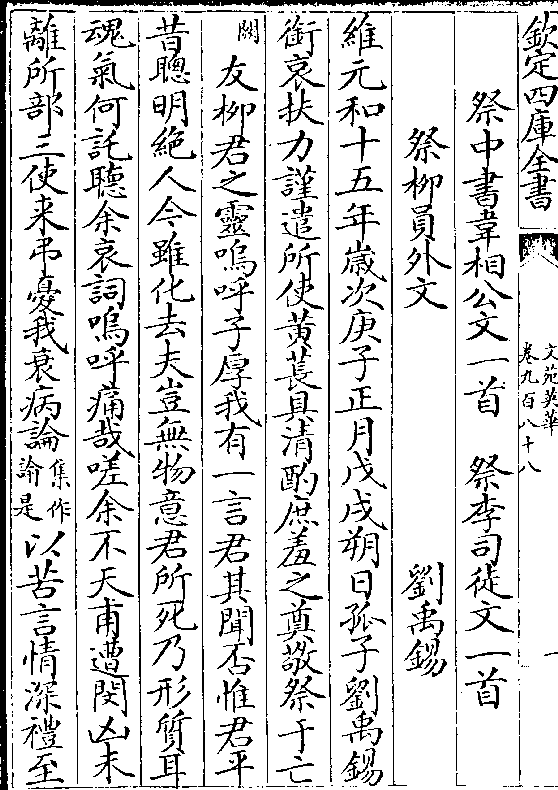 欽定四庫全書
文苑英華
卷九百八十八
一
祭中書韋相公文一首　祭李司徒文一首
祭柳員外文　劉禹錫
維元和十五年歲次庚子正月戊戌朔日孤子劉禹錫
銜哀扶力謹遣所使黃萇具清酌庶羞之奠敬祭于亡
闕友柳君之靈嗚呼子厚我有一言君其聞否惟君平
昔聰明絕人今雖化去夫豈無物意君所死乃形質耳
魂氣何託聽余哀詞嗚呼痛哉嗟余不天甫遭閔凶未
離所部三使来弔憂我衰病論集作論是以苦言情深禮至